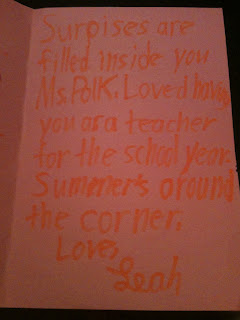 Surpises are
filled inside you
Ms. Polk. Loved having
you as a teacher
for the school year.
Summer's around
the corner.
Love,
Leah